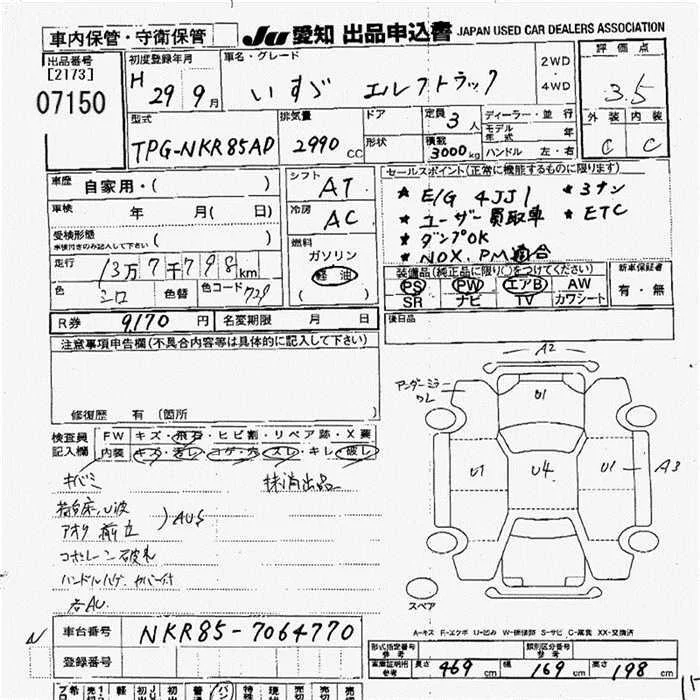 車内保管・守衛保管
JU 愛知 出品申込書 JAPAN USED CAR DEALERS ASSOCIATION
出品番号
[2173]
07150
初度登録年月
H 29年 9月
車名・グレード
いすゞ エルフトラック
2WD
4WD
評価点
3.5
外装 内装
C C
型式
TPG-NKR85AD
排気量
2990 CC
ドア
形状
定員 3人
積載 3000kg
ディーラー・並行
モデル年式 年
ハンドル 左・右
車歴 自家用・( )
車検 年 月( 日)
受検形態
車検付きのみ記入して下さい ( )
走行 13万7千798km
色 シロ 色替 色コード 729
シフト AT
冷房 AC
燃料
ガソリン
軽油
( )
セールスポイント(正常に機能するものに限ります)
* E/G 4JJ1 * 3ナン
* ユーザー買取車 * ETC
* ダンプOK
* NOX.PM適合
装備品(純正品に限り○をつけてください)
PS PW エアB AW
SR ナビ TV カワシート
新車保証書
有・無
R券 9,170円 名変期限 月 日
後日品
注意事項申告欄(不具合内容等は具体的に記入して下さい)
修復歴 有 (箇所 )
検査員
記入欄
FW キズ・飛石・ヒビ割・リペア跡・X要
内装 キズ・汚レ・コゲ・穴・スレ・キレ・破レ
キバミ
抹消出品
荷台床、U波
アオリ
AUS
コボレーン破れ
ハンドルハゲ カバー付
右AU
アンダーミラー
ワレ
A2
U1
U1
U4
U1
A3
スペア
A-キズ E-エクボ U-凹み W-補修跡 S-サビ C-腐食 XX-交換済
車台番号 NKR85-7064770
登録番号
形式指定番号
参考
類別区分番号
参考
車庫証明用
参考
長さ 469cm 幅 169cm 高さ 198cm